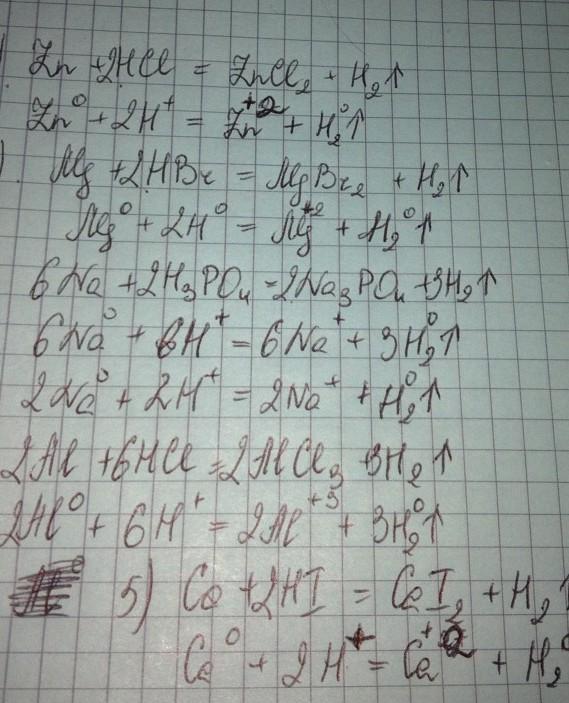 ) Zn + 2HCl = ZnCl₂ + H₂↑
Zn⁰ + 2H⁺ = Zn⁺² + H₂⁰↑
). Mg + 2HBr = MgBr₂ + H₂↑
Mg⁰ + 2H⁰ = Mg⁺² + H₂⁰↑
6Na + 2H₃PO₄ = 2Na₃PO₄ + 3H₂↑
6Na⁰ + 6H⁺ = 6Na⁺ + 3H₂⁰↑
2Na⁰ + 2H⁺ = 2Na⁺ + H₂⁰↑
2Al + 6HCl = 2AlCl₃ + 3H₂↑
2Al⁰ + 6H⁺ = 2Al⁺³ + 3H₂⁰↑
5) Ca + 2HI = CaI₂ + H₂↑
Ca⁰ + 2H⁺ = Ca⁺² + H₂⁰